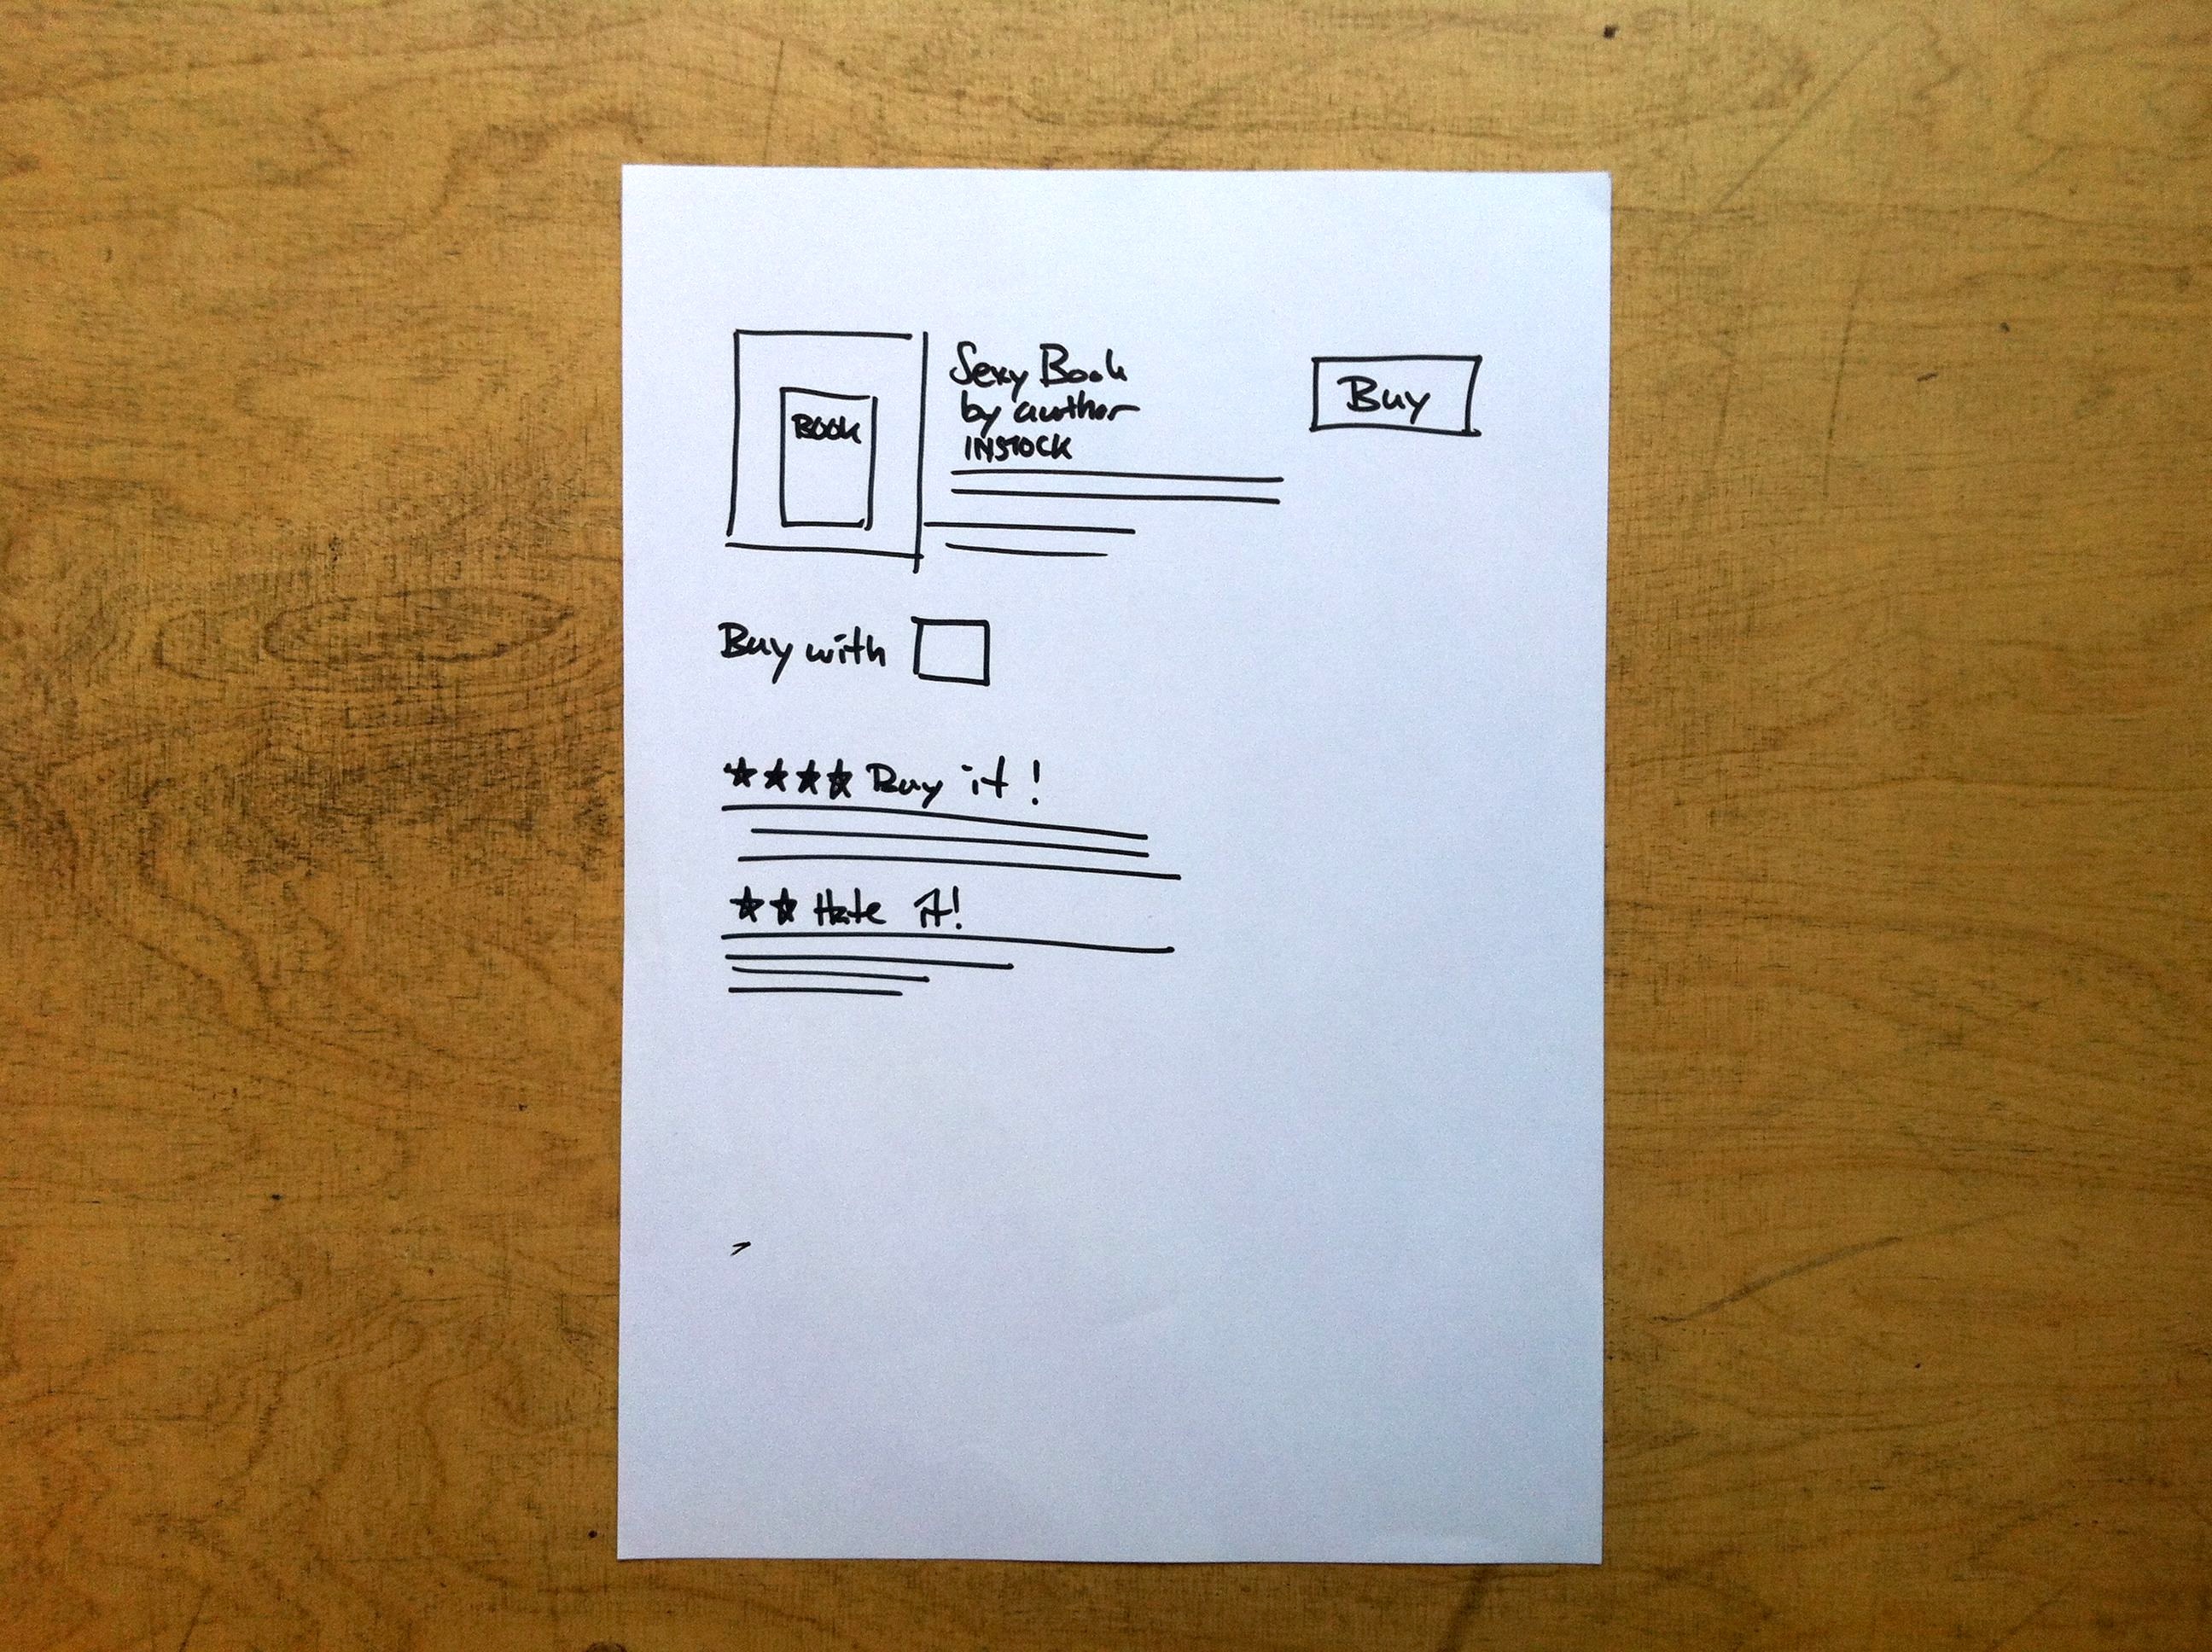 BOOK
Sexy Book
by author
INSTOCK
Buy
Buy with
★★★★ Buy it!
★★ Hate it!